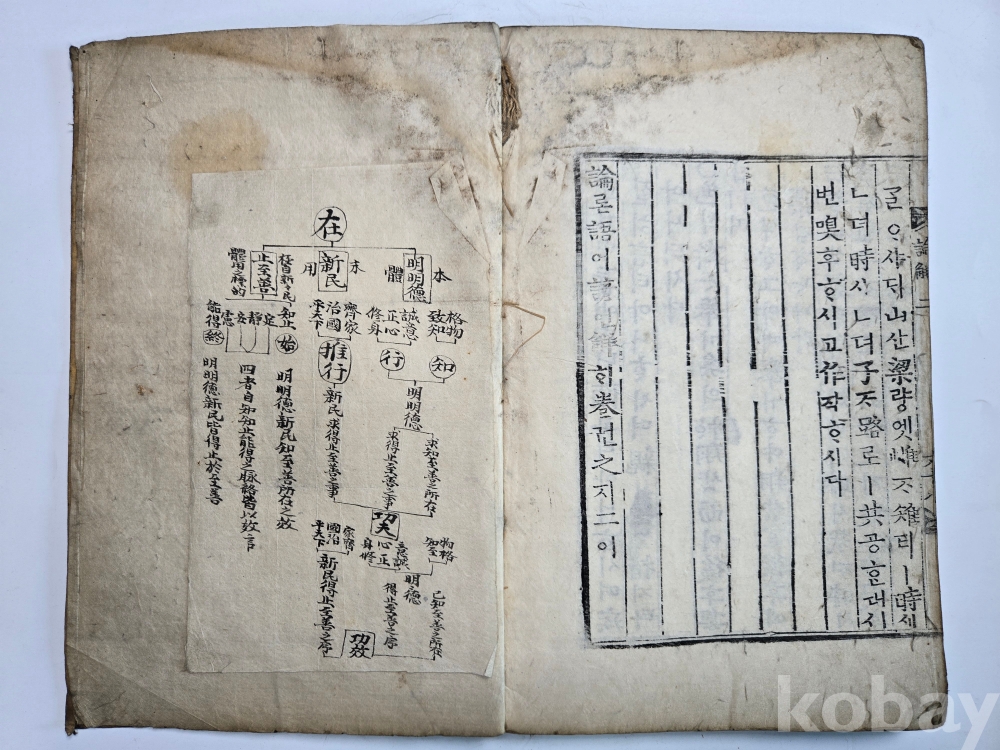 ᄀᆞᆯᄋᆞ샤ᄃᆡ山산梁량엣雌ᄌᆞ雉티ㅣ時시
ㄴ뎌時시ㄴ뎌子ᄌᆞ路로ㅣ共공ᄒᆞᆫ대세
번嗅후ᄒᆞ시고作작ᄒᆞ시다
論론語어諺언解ᄒᆡ卷권之지二이
論解 二
在
本
明明德
體
末
新民
用
極自新新民
止至善
體用之標的
格物
致知
誠意
正心
修身
齊家
治國
平天下
知止
定
靜
安
慮
能得
知
行
推行
始
終
明明德
求知至善之所在
求得止至善之事
新民
求得止至善之事
明明德新民知至善所在之效
四者自知止能得之脉絡皆以效言
明明德新民皆得止於至善
功夫
物格
知至
意誠
心正
身修
家齊
國治
天下平
明明德
已知至善之所在
得止至善之序
新民得止至善之序
功效
kobay